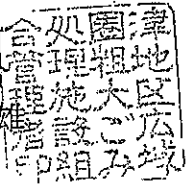 津地区広域
圏粗大ごみ
処理施設組
合管理者印
雄